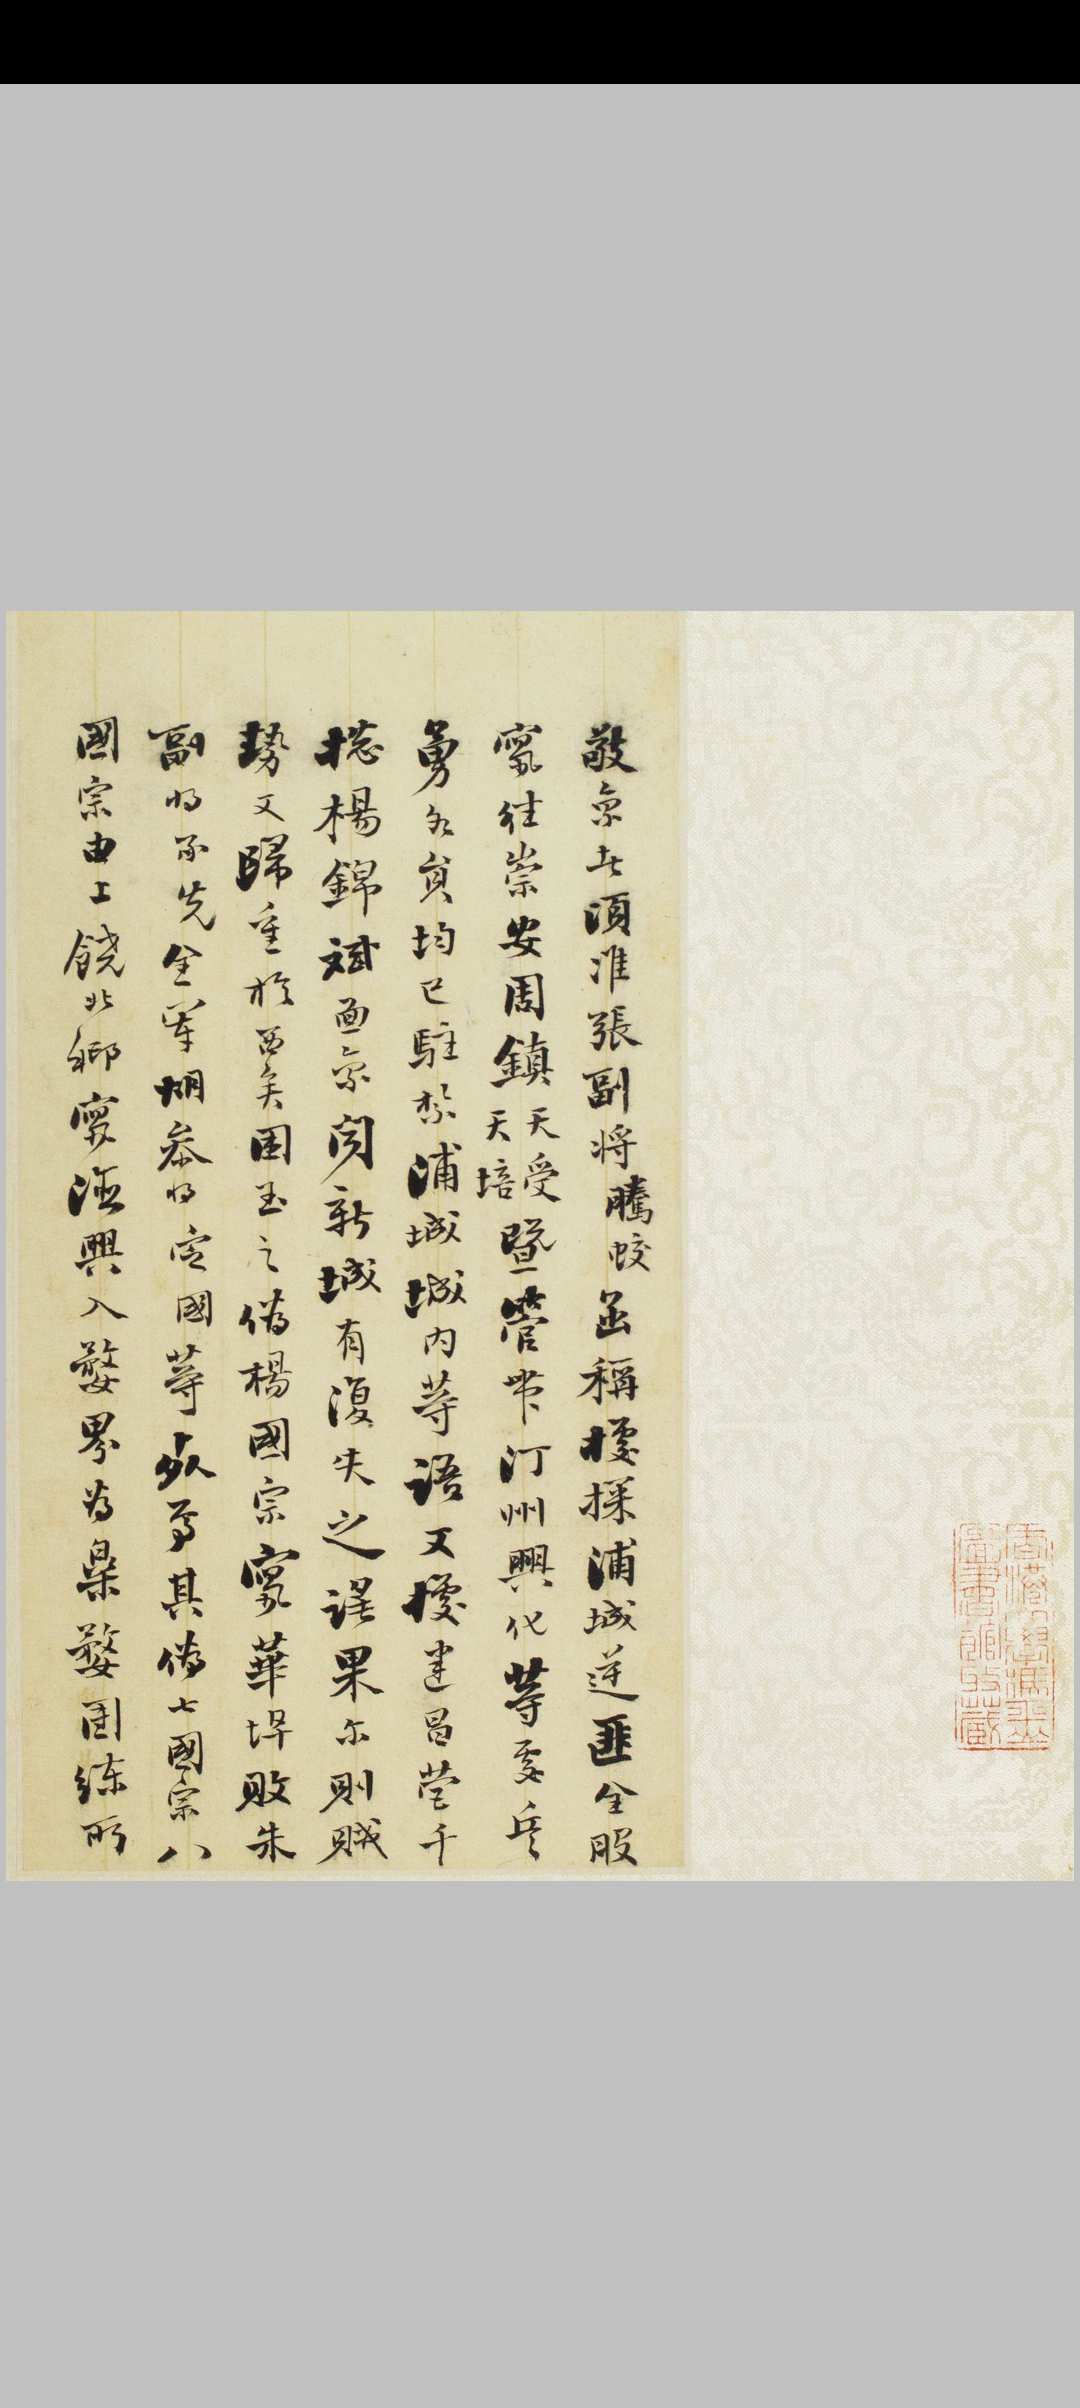 敬稟者頃准張副將騰蛟函稱據探浦城逆匪全股
竄往崇安周鎮天受天培暨營帶汀州興代等處兵
勇各員均已駐紮浦城城內等語又據建昌營千
揔楊錦斌面稟聞新城有復失之謠果尔則賊
勢又歸重於西矣困玉之偽楊國宗竄華埠敗朱
副將不先全軍烟叅將定國等卒其偽七國宗八
國宗由上饒北鄉竄德興入婺界為臬婺團練所
香港中文大學圖書館收藏